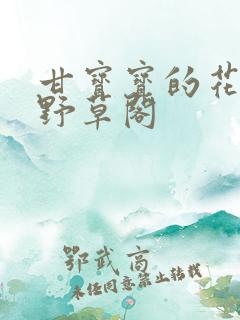 甘寳寳的花
野草閣
鄂武高
未经同意禁止转载